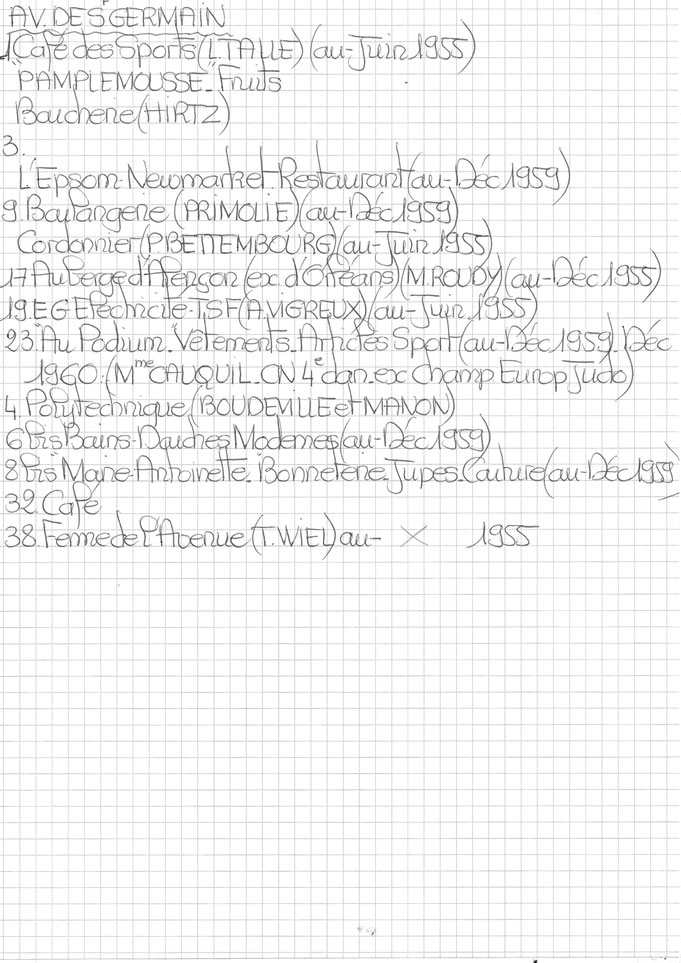 AV. DE S^t GERMAIN
1. Café des Sports (L. TALLE) (au-Juin 1955)
"PAMPLEMOUSSE". Fruits
Boucherie (HIRTZ)
3.
L'Epsom-Newmarket-Restaurant (au-Déc 1959)
9. Boulangerie (PRIMOLIE) (au-Déc 1959)
Cordonnier (P. BETTEMBOURG) (au-Juin 1955)
17 Auberge d'Alençon (ex. d'Orléans) (M. ROUDY) (au-Déc 1955)
19. E G Electricité-T.S.F (A. VIGREUX) (au-Juin 1955)
23. "Au Podium". Vêtements. Articles Sport (au-Déc 1959). Déc
1960. (Mme CAUQUIL. CN 4e dan. ex Champ Europ Judo)
4. Polytechnique (BOUDEVILLE et MANON)
6 bis Bains-Douches Modernes (au-Déc 1959)
8 bis "Marie-Antoinette". Bonneterie. Jupes. Couture (au-Déc 1959)
32. Café
38. Ferme de l'Avenue (T. WIEL) au- X 1955